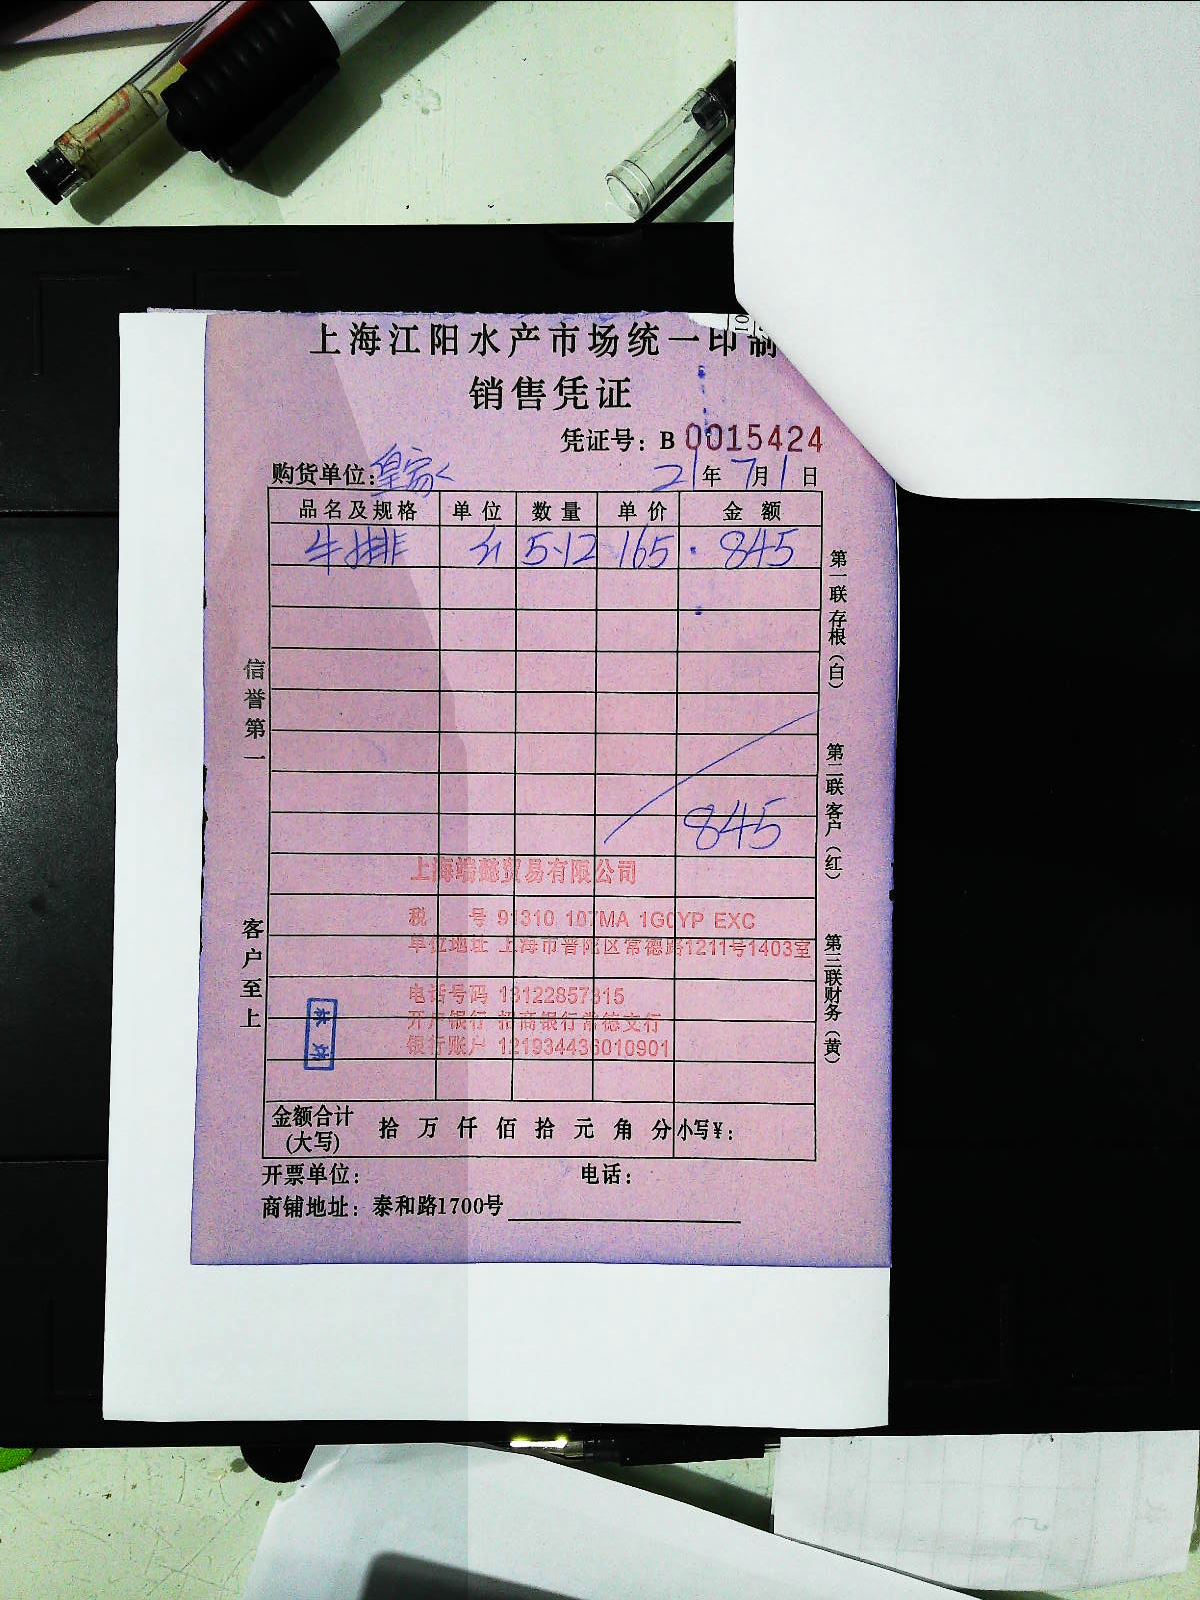 上海江阳水产市场统一印制
销售凭证
凭证号：B 0015424
购货单位：皇家 21年7月1日
品名及规格 单位 数量 单价 金额
牛排 5.12 165 845
845
上海端懿贸易有限公司
税 号 91310 107MA 1G0YP EXC
单位地址 上海市普陀区常德路1211号1403室
电话号码 13122857315
开户银行 招商银行常德支行
银行账户 121934436010901
金额合计(大写) 拾 万 仟 佰 拾 元 角 分 小写¥：
开票单位： 电话：
商铺地址：泰和路1700号
信誉第一
客户至上
第一联 存根（白）
第二联 客户（红）
第三联 财务（黄）